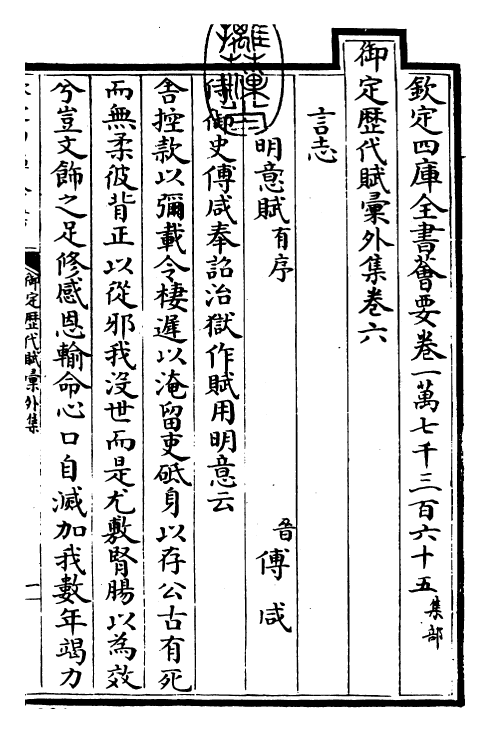 欽定四庫全書薈要卷一萬七千三百六十五 集部
御定歷代賦彙外集卷六
言志
明意賦有序 晉傅咸
侍御史傅咸奉詔治獄作賦用明意云
舎控款以彌載令棲遲以淹留吏砥身以存公古有死
而無柔彼背正以從邪我沒世而是尤敷腎腸以為效
兮豈文飾之足修感恩輸命心口自滅加我數年竭力
御定歷代賦彙外集
一